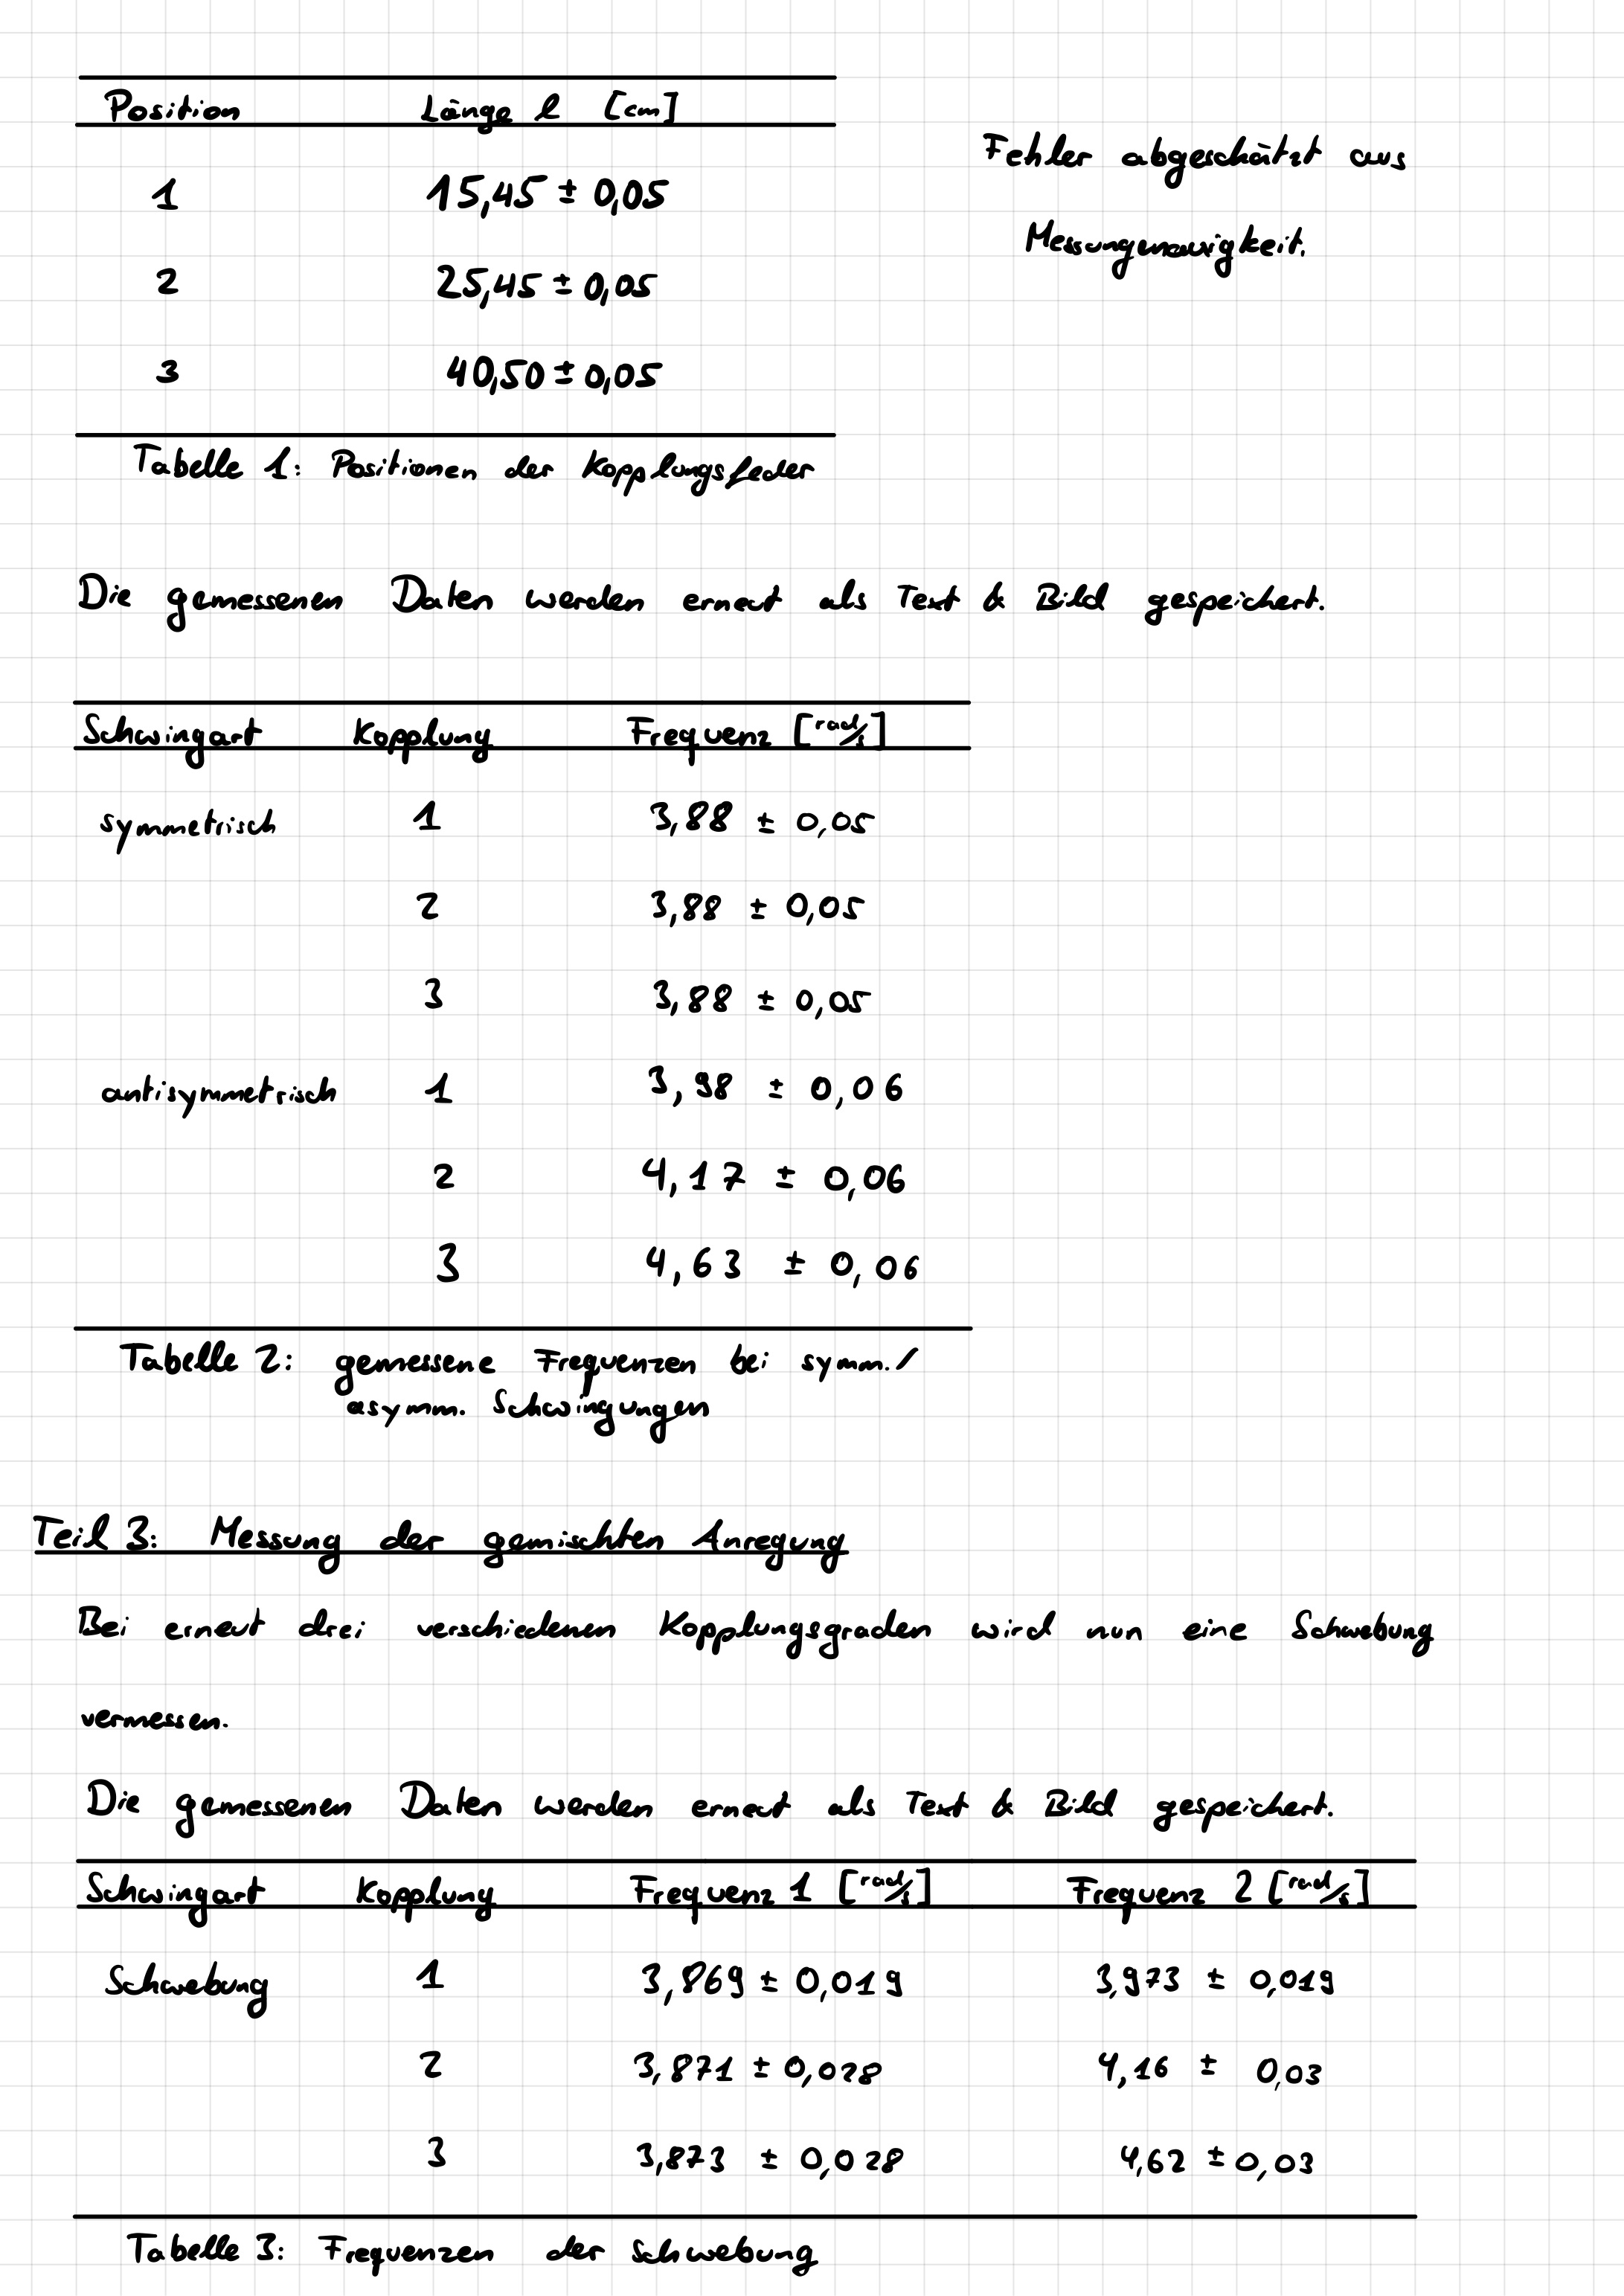 Position Länge l [cm]
Fehler abgeschätzt aus
Messungenauigkeit.
1 15,45 ± 0,05
2 25,45 ± 0,05
3 40,50 ± 0,05
Tabelle 1: Positionen der Kopplungsfeder
Die gemessenen Daten werden erneut als Text & Bild gespeichert.
Schwingart Kopplung Frequenz [rad/s]
symmetrisch 1 3,88 ± 0,05
2 3,88 ± 0,05
3 3,88 ± 0,05
antisymmetrisch 1 3,98 ± 0,06
2 4,17 ± 0,06
3 4,63 ± 0,06
Tabelle 2: gemessene Frequenzen bei symm./
asymm. Schwingungen
Teil 3: Messung der gemischten Anregung
Bei erneut drei verschiedenen Kopplungsgraden wird nun eine Schwebung
vermessen.
Die gemessenen Daten werden erneut als Text & Bild gespeichert.
Schwingart Kopplung Frequenz 1 [rad/s] Frequenz 2 [rad/s]
Schwebung 1 3,869 ± 0,019 3,973 ± 0,019
2 3,871 ± 0,028 4,16 ± 0,03
3 3,873 ± 0,028 4,62 ± 0,03
Tabelle 3: Frequenzen der Schwebung